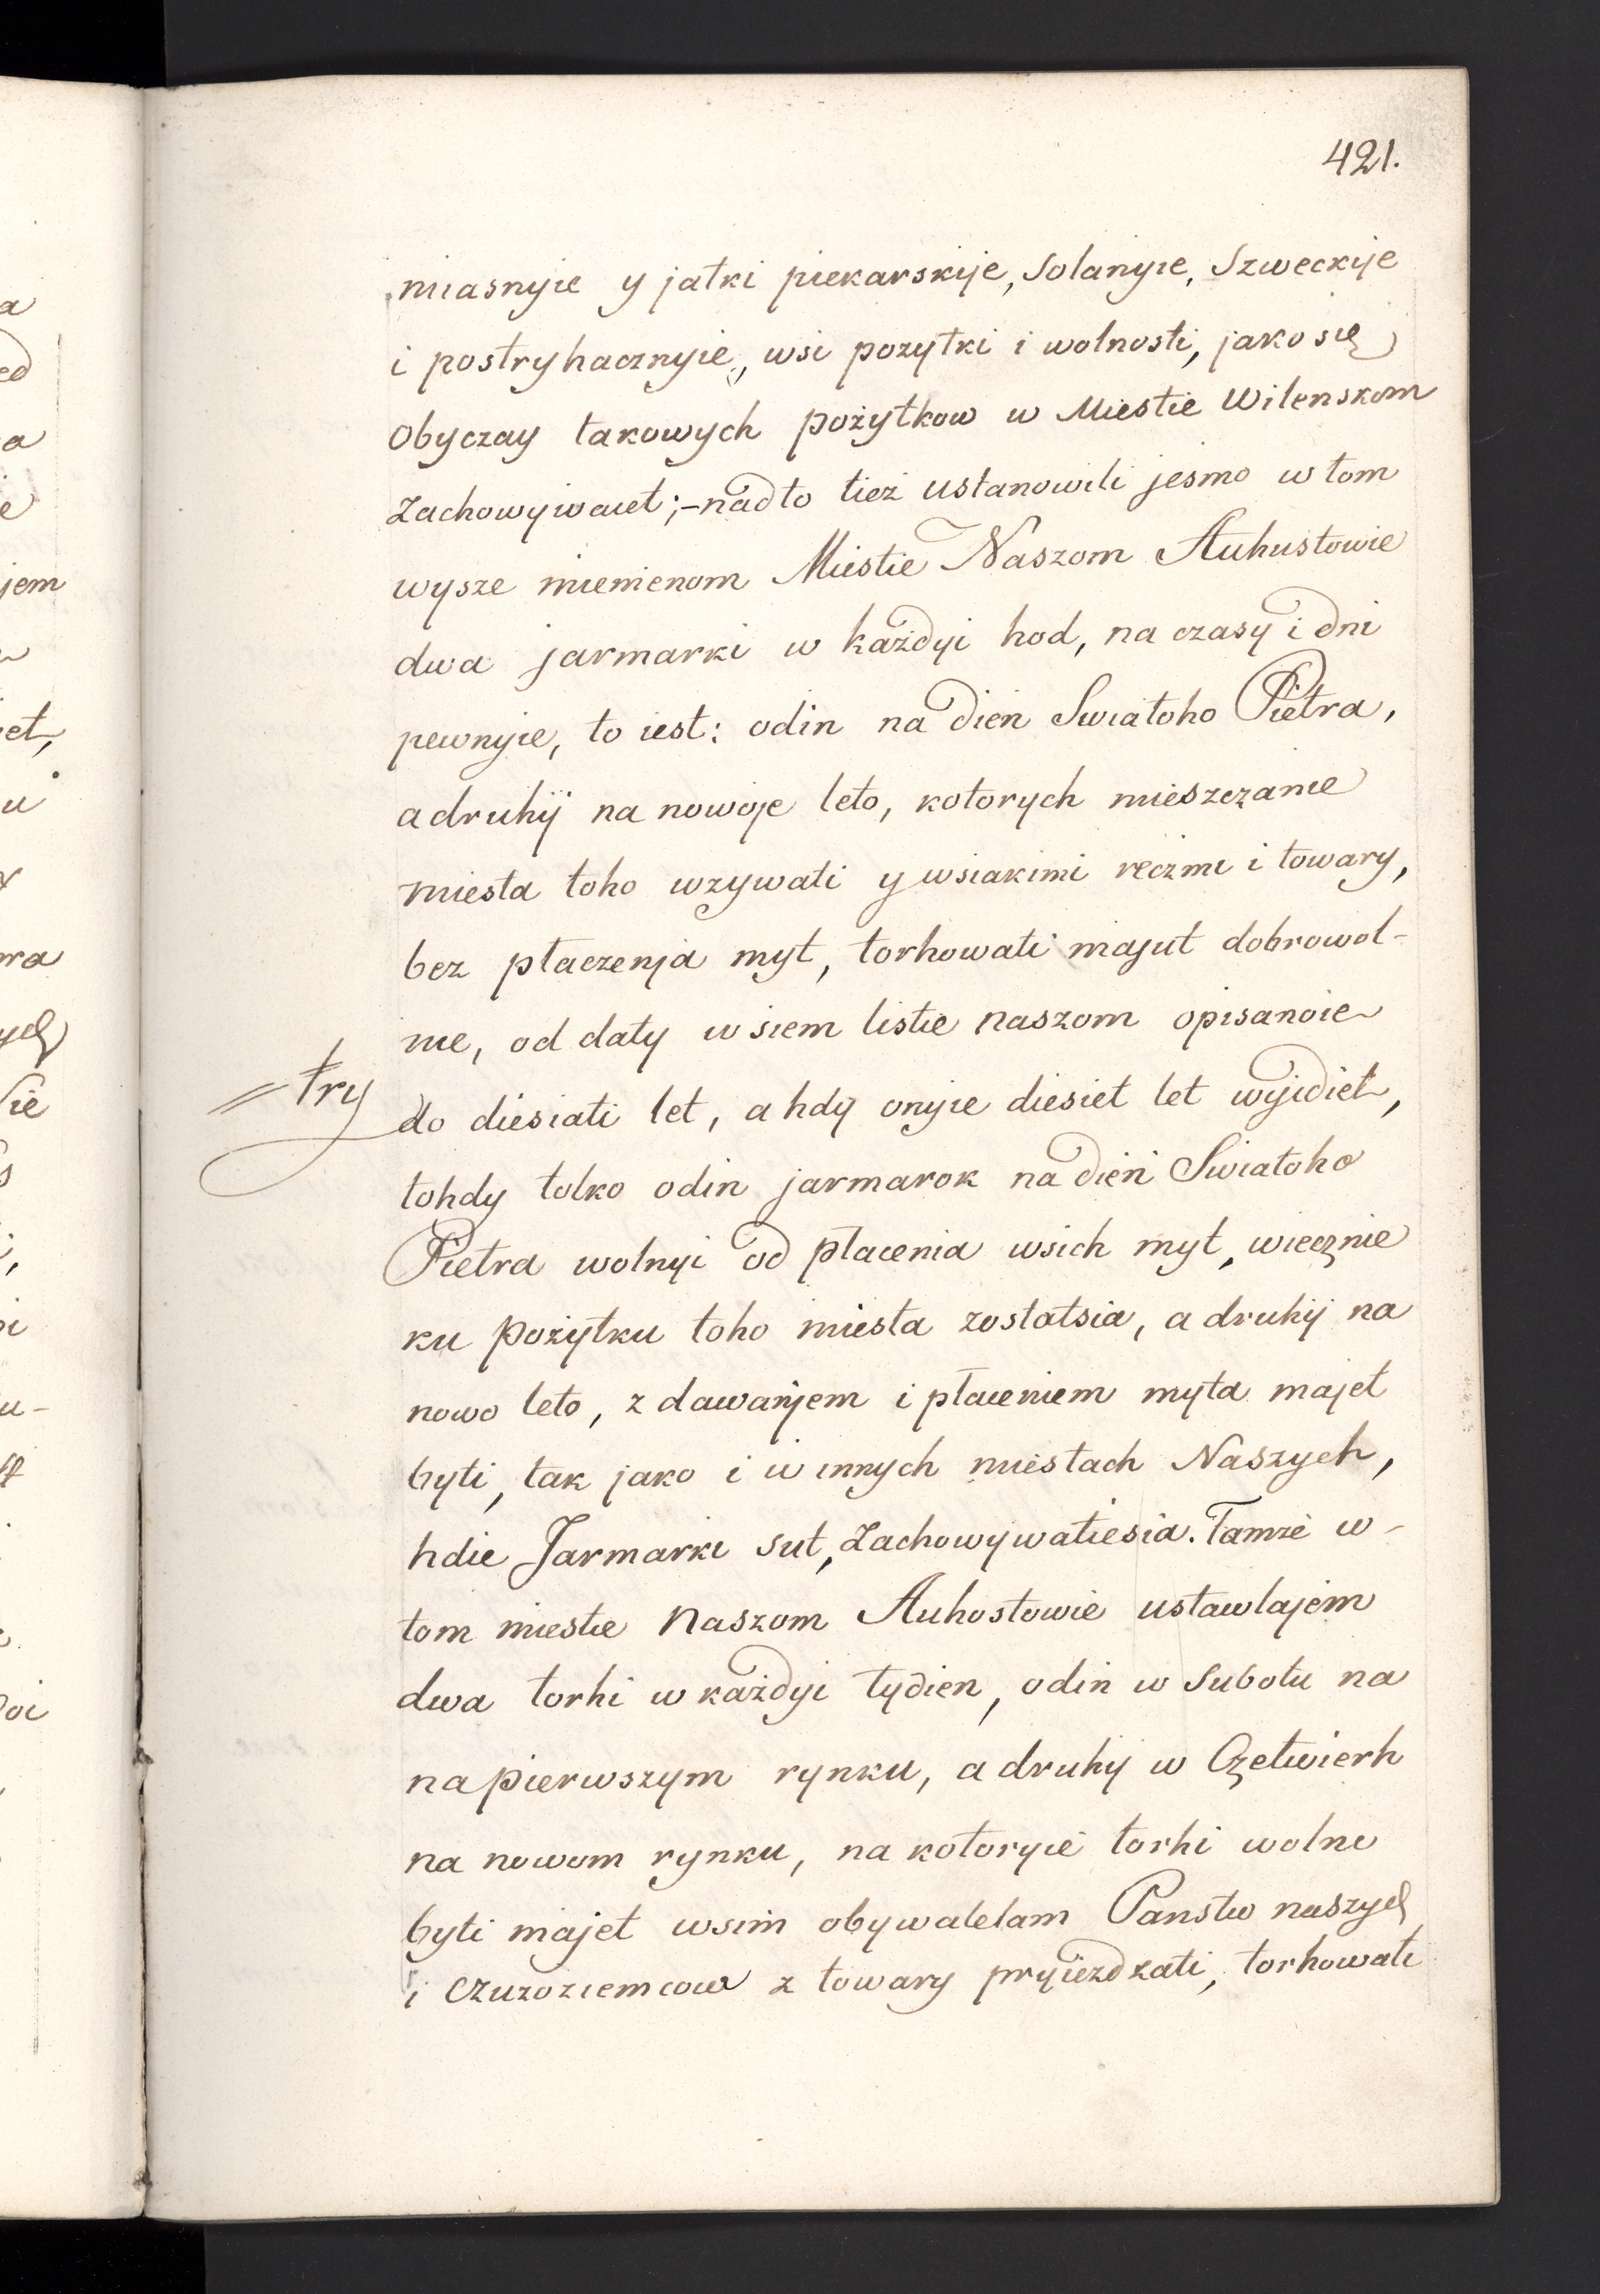 421.
miasnyie y jatki piekarskije, Solanyie, Szweckije
i postryhacznyie, wsi pozytki i wolnosti, jako się
Obyczay takowych pożytkow w Miestie Wilenskom
Zachowywaiet;-nadto tież ustanowili jesmo w tom
wysze mienienom Miestie Naszom Auhustowie
dwa jarmarki w każdyi hod, na czasy i dni
pewnyie, to iest: odin na dien Swiatoho Pietra,
a druhij na nowoje leto, kotorych mieszczanie
miesta toho wzywati y wsiakimi reczmi i towary,
bez płaczenja myt, torhowati majut dobrowol-
nie, od daty w siem listie naszom opisanoie
= try
do diesiati let, a hdy onyie diesiet let wyidiet,
tohdy tolko odin jarmarok na dień Swiatoho
Pietra wolnyi od płacenia wsich myt, wiecznie
ku pożytku toho miesta zostatsia, a druhij na
nowo leto, z dawanjem i płaceniem myta majet
byti, tak jako i w innych miestach Naszych,
hdie Jarmarki sut, Zachowywatiesia. Tamże w-
tom miestie Naszom Auhostowie ustawlajem
dwa torhi w każdyi tydien, odin w Subotu na
na pierwszym rynku, a druhij w Czetwierh
na nowom rynku, na kotoryie torhi wolno
byti majet wsim obywatelam Panstw naszych
i Czuzoziemcow z towary pryiezdzati, torhowati